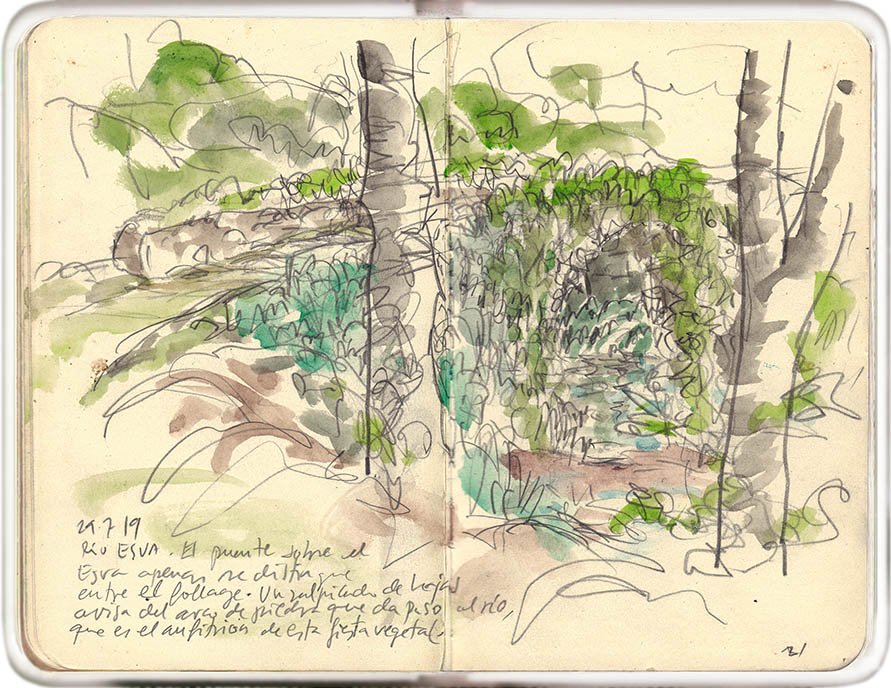 29.7.19
Río ESVA. El puente sobre el
Esva apenas se distingue
entre el follage. Un salpicado de hojas
avisa del arco de piedra que da paso al río,
que es el anfitrión de esta fiesta vegetal.